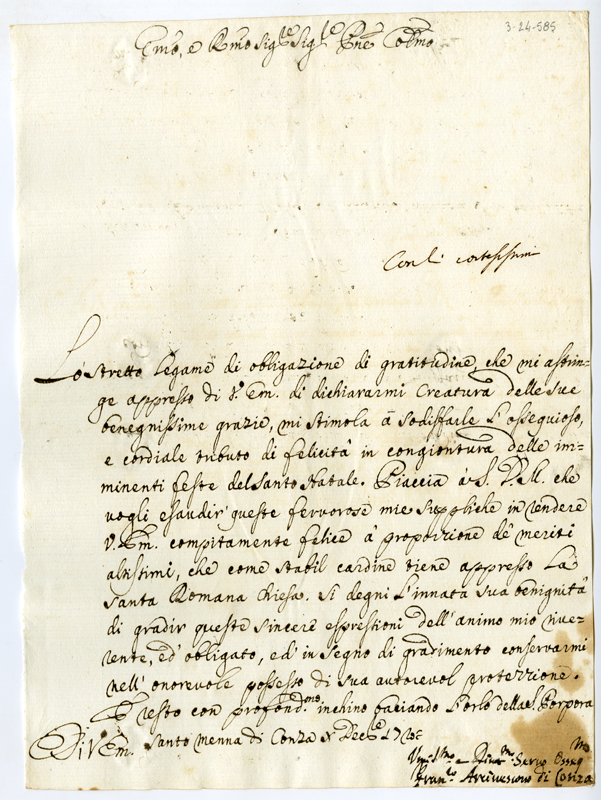 3-24-585
Emo, e Rmo Sig.re Sig.re Pne Colmo
Con li cortesissimi
Lo stretto legame di obligazione di gratitudine, che mi astrin=
ge appresso di V. Em. di dichiararmi Creatura delle sue
benegnissime grazie, mi stimola à sodisfarle l'ossequioso,
e cordiale tributo di felicità in congiontura delle im=
minenti feste del Santo Natale. Piaccia à S. D. M. che
vogli esaudir queste fervorose mie suppliche in rendere
V. Em. compitamente felice à proporzione dè meriti
altissimi, che come stabil cardine tiene appresso La
Santa Romana Chiesa. Si degni l'innata sua benignità
di gradir queste sincere espressioni dell'animo mio rive=
rente, ed'obligato, ed'in segno di gradimento conservarmi
nell'onorevole possesso di sua autorevol protezzione.
E resto con profond.mo inchino baciando l'orlo della Porpora
Di V. Em. Santo Menna di Conza Decbe
Servo
Fran.co Arcivescovo di Conza